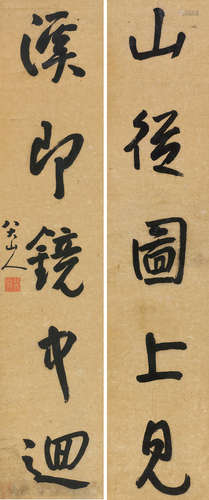 山從圖上見
溪即鏡中迴
八大山人